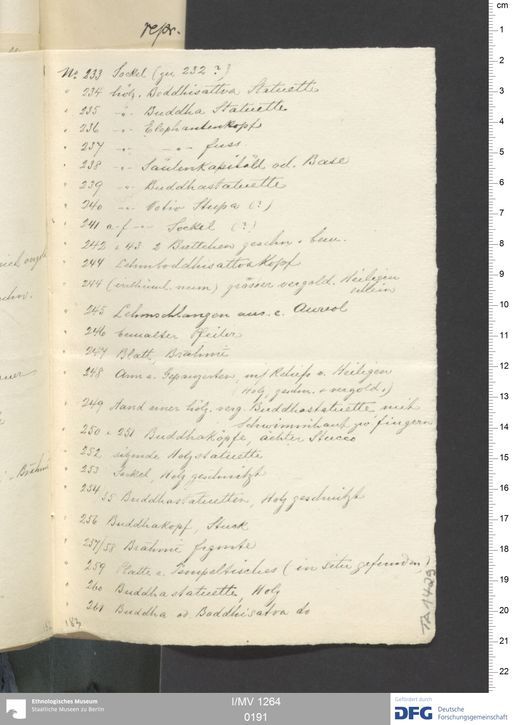 repr.
No 233 Sockel (zu 232?)
" 234 hölz. Boddhisattva Statuette
" 235 -"- Buddha Statuette
" 236 -"- Elephantenkopf
" 237 -"- -"- fuss
" 238 -"- Säulenkapitäll od. Base
" 239 -"- Buddhastatuette
" 240 -"- Votiv Stupa (?)
" 241 a-f -"- Sockel (?)
" 242 u 43 2 Brettchen geschn. u bem.
" 244 Lehmboddhisattvakopf
" 244 grosser vergold. Heiligen
" 245 Lehmschlangen aus e. Aureol
" 246 bemalter Pfeiler
" 247 Blatt, Brāhmi
" 248 Arm e. mit Reliefs v. Heiligen
(Holz geschn. u vergold.)
" 249 Hand einer hölz. verg. Buddhastatuette mit
Schwimmhaut zw fingern
" 250 u 251 Buddhaköpfe, achter Stucco
" 252 sitzende Holzstatuette
" 253 Sockel, Holz geschnitzt
" 254
55 Buddhastatuetten, Holz geschnitzt
" 256 Buddhakopf, Stuck
" 257/58 Brāhmi fragmente
" 259 Platte e. Tempeltisches (in situ gefunden)
" 260 Buddhastatuette, Holz
" 261 Buddha od. Boddhisatva do
183
TA 1423
cm
1
2
3
4
5
6
7
8
9
10
11
12
13
14
15
16
17
18
19
20
21
22
Ethnologisches Museum
Staatliche Museen zu Berlin
I/MV 1264
0191
Gefördert durch
DFG Deutsche
Forschungsgemeinschaft